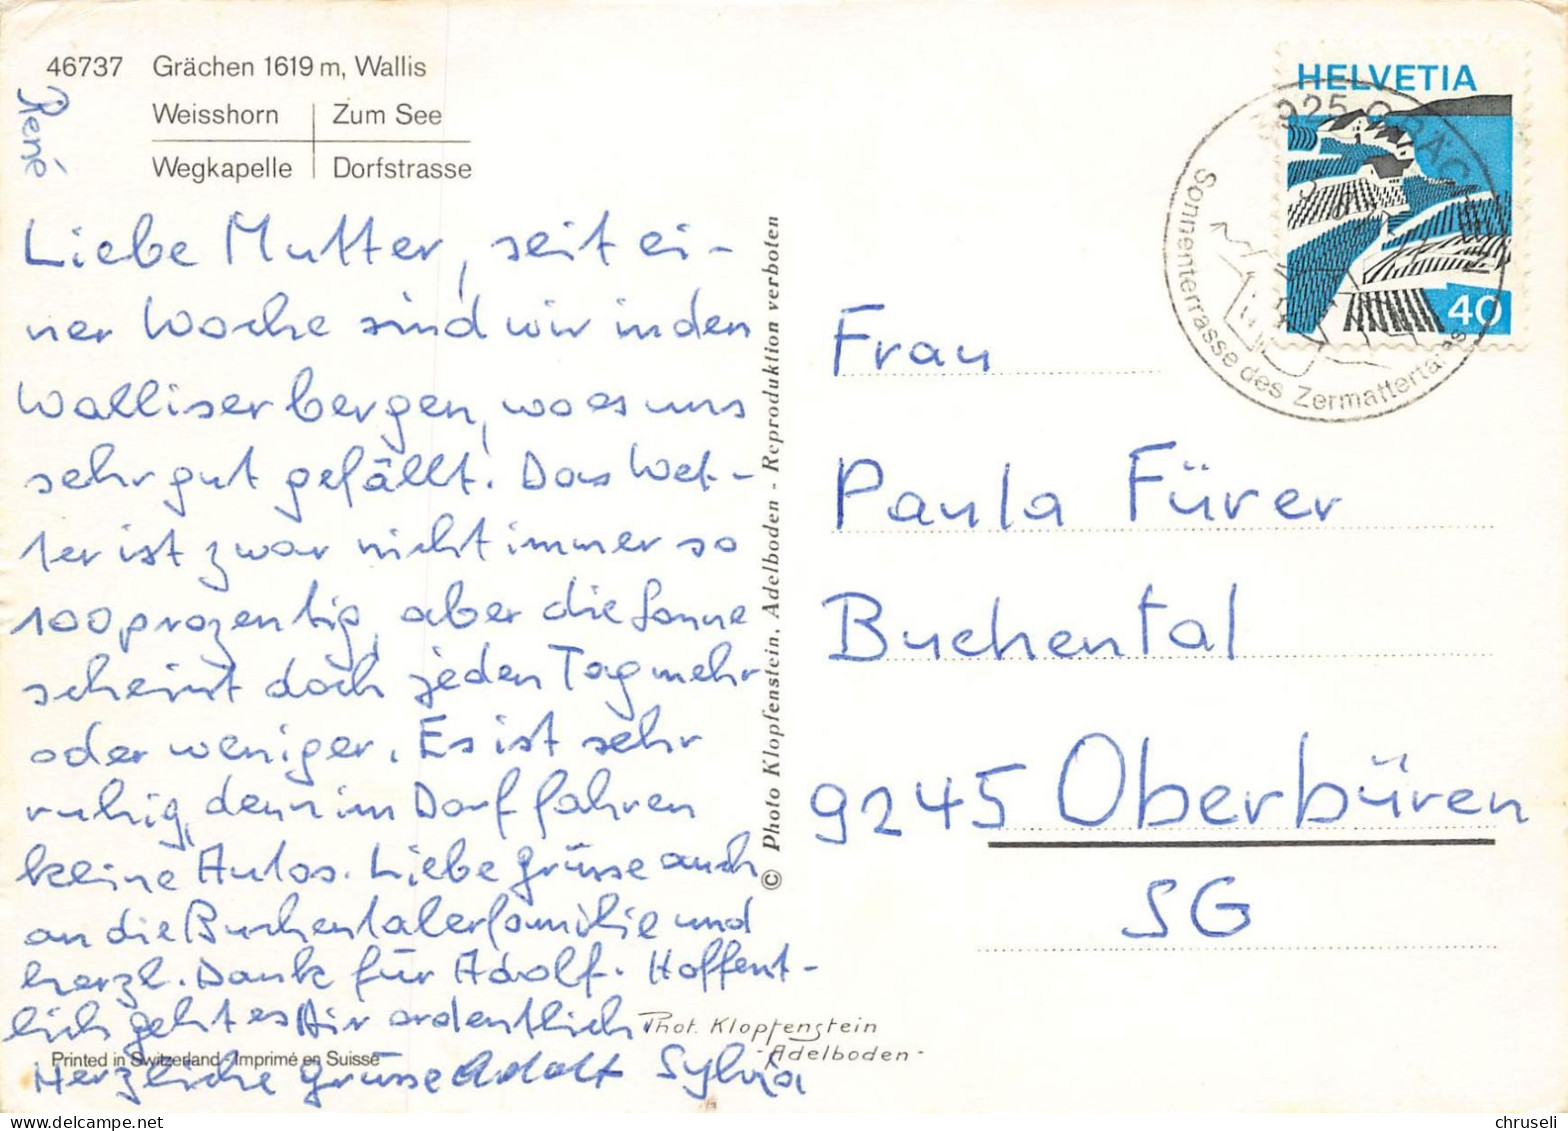 46737 Grächen 1619 m, Wallis
Weisshorn Zum See
Wegkapelle Dorfstrasse
René
Liebe Mutter, seit ei-
ner Woche sind wir in den
Walliserbergen, wo es uns
sehr gut gefällt. Das Wet-
ter ist zwar nicht immer so
100prozentig, aber die Sonne
scheint doch jeden Tag mehr
oder weniger. Es ist sehr
ruhig, denn im Dorf fahren
keine Autos. Liebe Grüsse auch
an die Buchentalerfamilie und
herzl. Dank für Adolf. Hoffent-
lich geht es Dir ordentlich
Herzliche Grüsse Adolf Sylvia
Printed in Switzerland - Imprimé en Suisse
Phot. Klopfenstein
- Adelboden -
© Photo Klopfenstein, Adelboden - Reproduktion verboten
HELVETIA
40
Sonnenterrasse des Zermattertales
Frau
Paula Fürer
Buchental
9245 Oberbüren
SG
chruseli